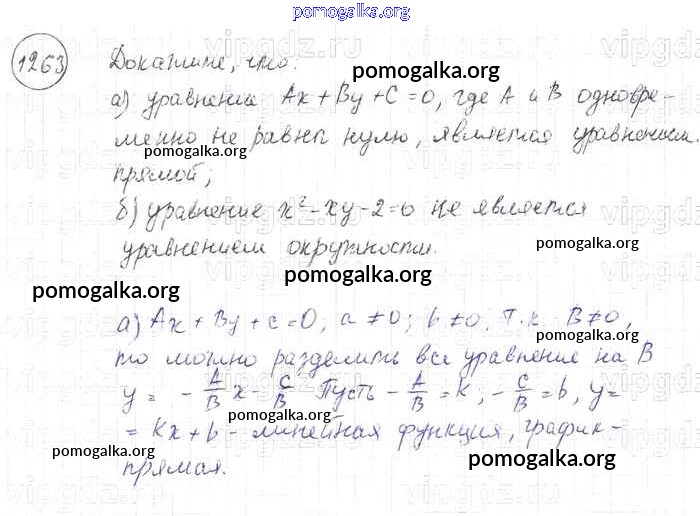 pomogalka.org
1263 Докажите, что:
pomogalka.org
а) уравнение Ax + By + C = 0, где A и B одновре-
менно не равны нулю, является уравнением
pomogalka.org
pomogalka.org
прямой;
б) уравнение x² - xy - 2 = 0 не является
уравнением окружности.
pomogalka.org
pomogalka.org
pomogalka.org
а) Ax + By + c = 0, a ≠ 0; b ≠ 0. Т.к. B ≠ 0,
pomogalka.org
то можно разделить все уравнение на B
y = - A/B x - C/B Пусть - A/B = k; - C/B = b, y =
pomogalka.org
= kx + b - линейная функция, график -
pomogalka.org
pomogalka.org
прямая.